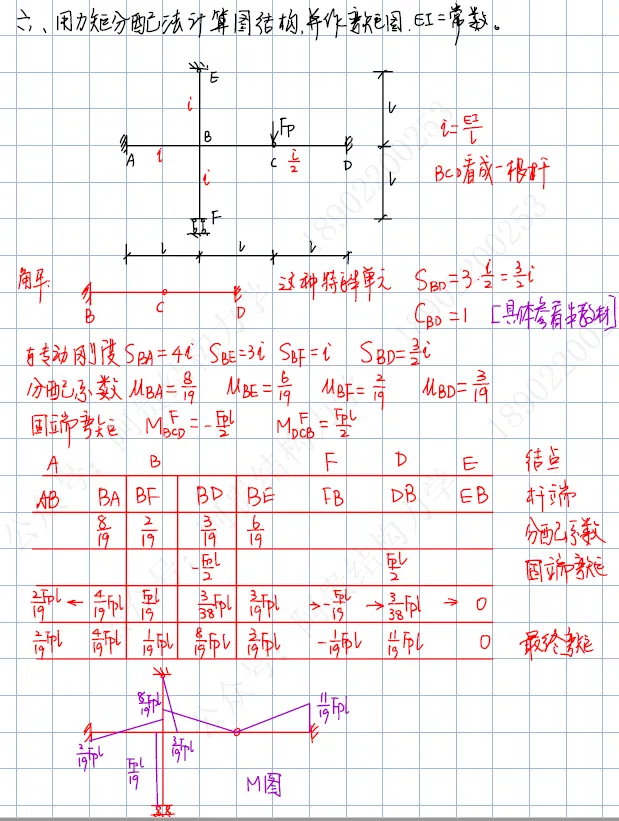 六、用力矩分配法计算图结构,并作弯矩图.EI=常数。
E
i
l
Fp
i=EI/l
A
i
B
C
i/2
D
BCD看成一根杆
i
l
F
l
l
l
解:
B
C
D
这种特殊单元
S_BD=3·i/2=3/2 i
C_BD=1 [具体参看朱教材]
转动刚度 S_BA=4i S_BE=3i S_BF=i S_BD=3/2 i
分配系数 μ_BA=8/19 μ_BE=6/19 μ_BF=2/19 μ_BD=3/19
固端弯矩 M^F_BCD=-Fpl/2 M^F_DCB=Fpl/2
A B F D E 结点
AB BA BF BD BE FB DB EB 杆端
8/19 2/19 3/19 6/19 分配系数
-Fpl/2 Fpl/2 固端弯矩
2Fpl/19 ← 4/19 Fpl Fpl/19 3/38 Fpl 3/19 Fpl → -Fpl/19 → 3/38 Fpl → 0
2/19 Fpl 4/19 Fpl 1/19 Fpl 8/19 Fpl 3/19 Fpl -1/19 Fpl 11/19 Fpl 0 最终弯矩
8/19 Fpl
11/19 Fpl
2/19 Fpl
3/19 Fpl
Fpl/19
M图
18902200253